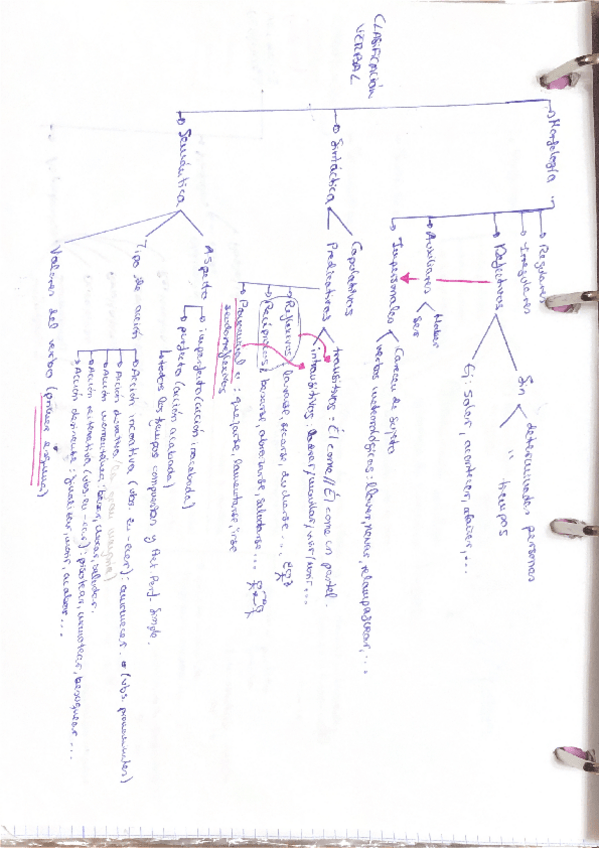 CLASIFICACIÓN VERBAL
→ Morfología
→ Regulares
→ Irregulares
→ Defectivos
Sin determinadas personas
" tiempos
Ej: Soler, acontecer, atañer, ...
→ Auxiliares
Haber
Ser
→ Impersonales
Carecen de sujeto
verbos meteorológicos: llover, nevar, relampaguear, ...
→ Sintáctica
Copulativos
Predicativos
transitivos: Él come // Él come un pastel.
intransitivos: ladrar, maullar, vivir/morir, ...
→ Reflexivos: lavarse, secarse, ducharse ...
→ Recíprocos: besarse, abrazarse, saludarse ...
→ Pronominales: quejarse, lamentarse, irse
seudorreflexivos
→ Semántica
Aspecto
→ imperfecto (acción inacabada)
→ perfecto (acción acabada)
→ todos los tiempos compuestos y Pret. Perf. Simple.
Tipo de acción
→ Acción incoativa (vbs. en -ecer): amanecer. (vbs. pronominales)
→ Acción durativa
→ Acción momentánea: besar, clavar, saludar.
→ Acción reiterativa (vbs. en -ear): pisotear, manotear, besuquear ...
→ Acción desinente: finalizar, morir, acabar ...
Valores del verbo (primer esquema)